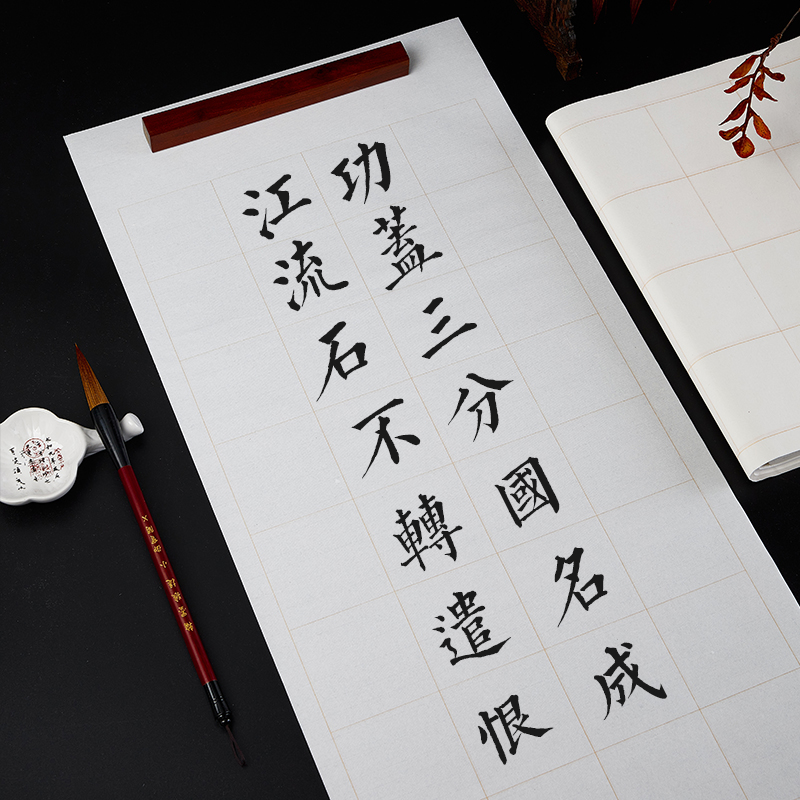 功蓋三分國名成
江流石不轉遣恨